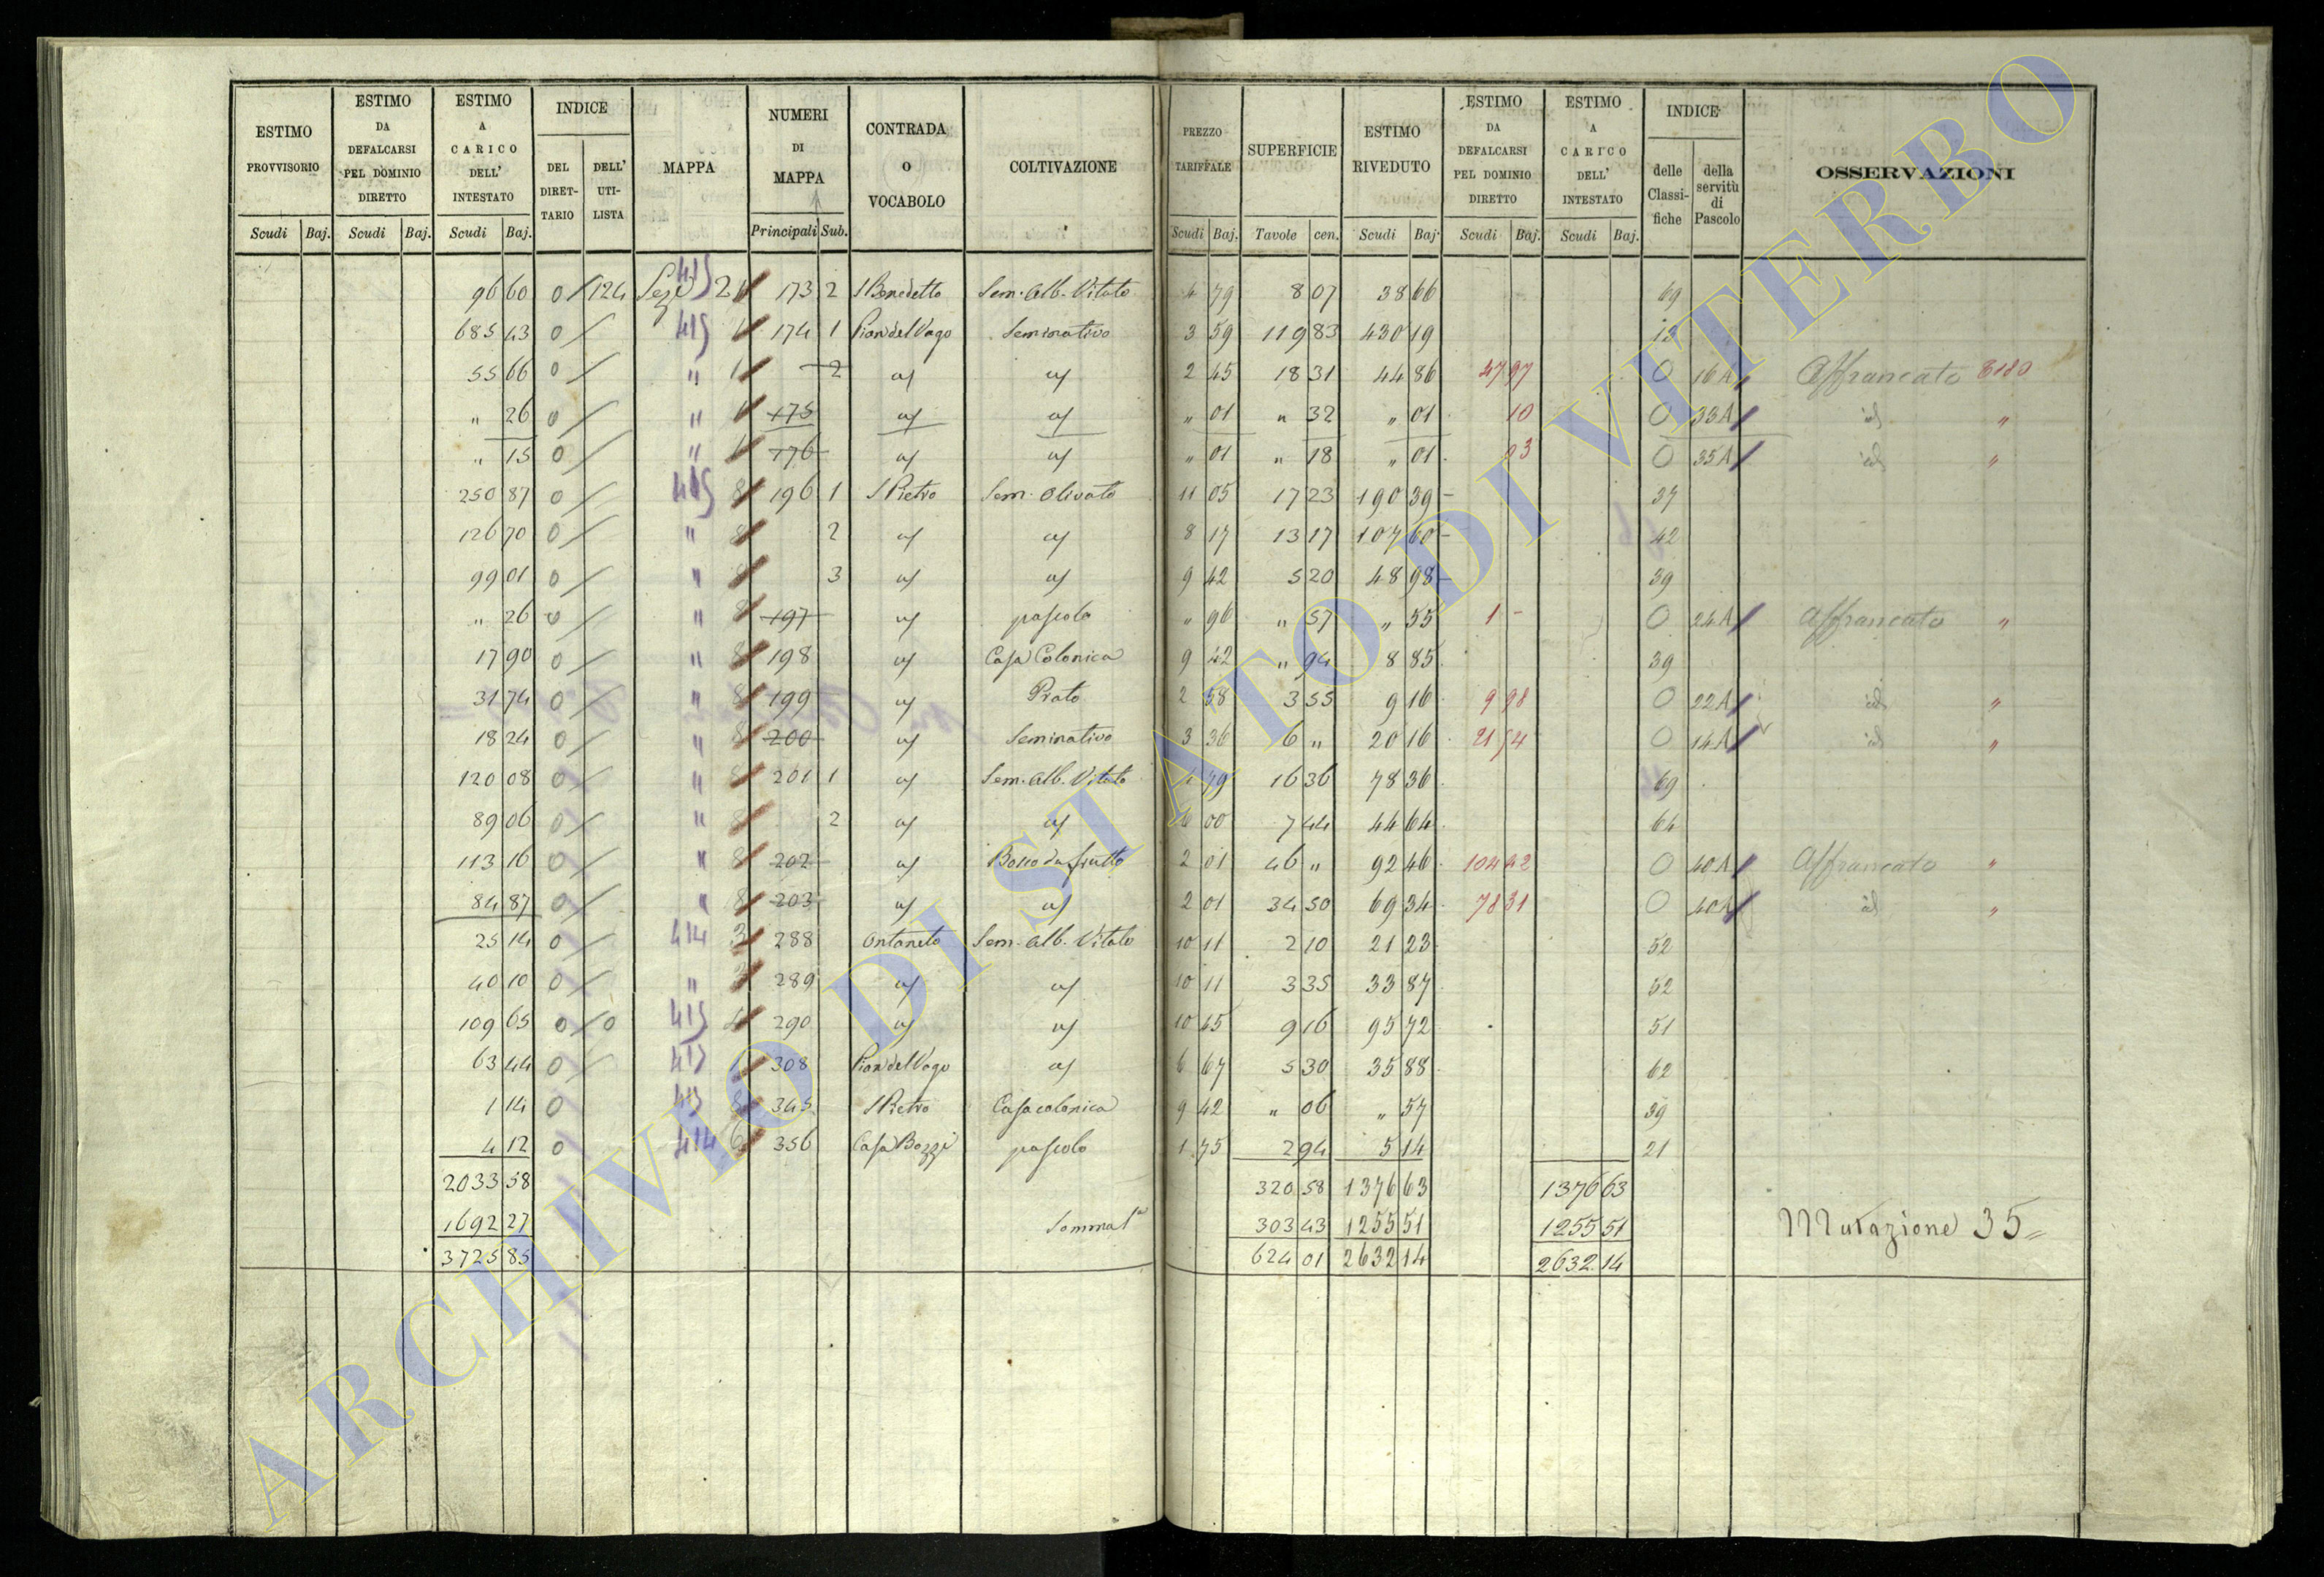 ESTIMO PROVVISORIO Scudi Baj.
ESTIMO DA DEFALCARSI PEL DOMINIO DIRETTO Scudi Baj.
ESTIMO A CARICO DELL' INTESTATO Scudi Baj.
INDICE DEL DIRETTARIO DELL' UTILISTA
MAPPA
NUMERI DI MAPPA Principali Sub.
CONTRADA O VOCABOLO
COLTIVAZIONE
PREZZO TARIFFALE Scudi Baj.
SUPERFICIE Tavole cen.
ESTIMO RIVEDUTO Scudi Baj.
ESTIMO DA DEFALCARSI PEL DOMINIO DIRETTO Scudi Baj.
ESTIMO A CARICO DELL' INTESTATO Scudi Baj.
INDICE delle Classifiche della servitù di Pascolo
OSSERVAZIONI
96 60 0 124 2 173 2 S Benedetto Sem. Alb. Vitato 4 79 8 07 38 66 69
685 43 0 415 174 1 Pian del Vago Seminativo 3 59 119 83 430 19
55 66 0 " 2 2 45 18 31 44 86 47 97 0 16 A Affrancato
" 26 0 " 175 " 01 " 32 " 01 10 0 33 A id "
" 15 0 " 176 " 01 " 18 " 01 0 35 A id "
250 87 0 415 8 196 1 S Pietro Sem. Olivato 11 05 17 23 190 39 37
126 70 0 " 8 2 8 17 13 17 107 60 42
99 01 0 " 8 3 9 42 5 20 48 98 39
" 26 0 " 8 197 pascolo " 96 " 57 " 55 1 - 0 24 A Affrancato "
17 90 0 " 8 198 Casa Colonica 9 42 " 94 8 85 39
31 74 0 " 8 199 Prato 2 58 3 55 9 16 9 98 0 22 A id "
18 24 0 " 8 200 Seminativo 3 36 6 " 20 16 21 54 0 14 A id "
120 08 0 " 8 201 1 Sem. Alb. Vitato 4 79 16 36 78 36 69
89 06 0 " 8 2 6 00 7 44 44 64 64
113 16 0 " 8 202 Bosco da frutto 2 01 46 " 92 46 104 42 0 40 A Affrancato "
84 87 0 " 8 203 2 01 34 50 69 34 78 31 0 40 A id "
25 14 0 414 3 288 Ontaneto Sem. Alb. Vitato 10 11 2 10 21 23 52
40 10 0 " 3 289 10 11 3 35 33 87 52
109 65 0 0 415 290 10 45 9 16 95 72 51
63 44 0 308 Pian del Vago 6 67 5 30 35 88 62
1 14 0 8 345 S Pietro Casa colonica 9 42 " 06 " 57 39
4 12 0 414 6 356 Casa Bozzi pascolo 1 75 2 94 5 14 21
2033 58 320 58 1376 63 1376 63
1692 27 Somma 303 43 1255 51 1255 51 Mutazione 35
3725 85 624 01 2632 14 2632 14
ARCHIVIO DI STATO DI VITERBO